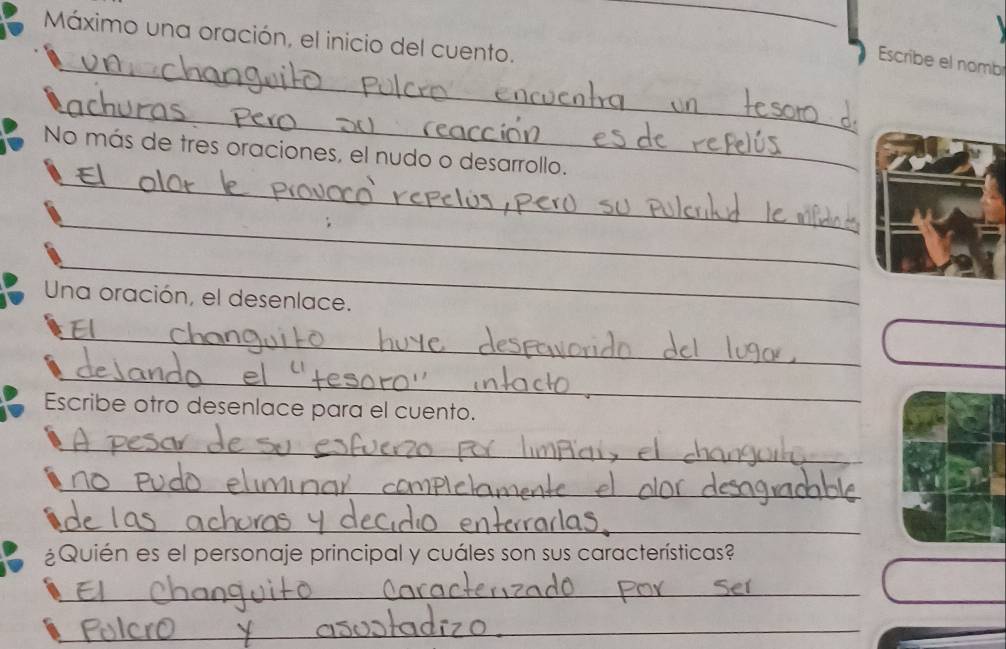 Máximo una oración, el inicio del cuento.
un changuito pulcro encuentra un tesoro d
achuras pero su reacción es de repelús
No más de tres oraciones, el nudo o desarrollo.
El olor le provocó repelús, pero su pulcritud le
Una oración, el desenlace.
El changuito huye despavorido del lugar,
dejando el "tesoro" intacto.
Escribe otro desenlace para el cuento.
A pesar de su esfuerzo por limpiar, el changuito
no pudo eliminar completamente el olor desagradable
de las achuras y decidio enterrarlas.
¿Quién es el personaje principal y cuáles son sus características?
El changuito caracterizado por ser
Pulcro y asustadizo.
Escribe el nomb